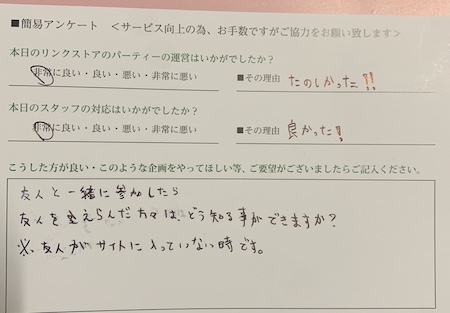 ■簡易アンケート ＜サービス向上の為、お手数ですがご協力をお願い致します＞
本日のリンクストアのパーティーの運営はいかがでしたか？
非常に良い・良い・悪い・非常に悪い ■その理由 たのしかった!!
本日のスタッフの対応はいかがでしたか？
非常に良い・良い・悪い・非常に悪い ■その理由 良かった!
こうした方が良い・このような企画をやってほしい等、ご要望がございましたらご記入ください。
友人と一緒に参加したら
友人をえらんだ方々は、どう知る事ができますか？
※、友人がサイトに入っていない時です。